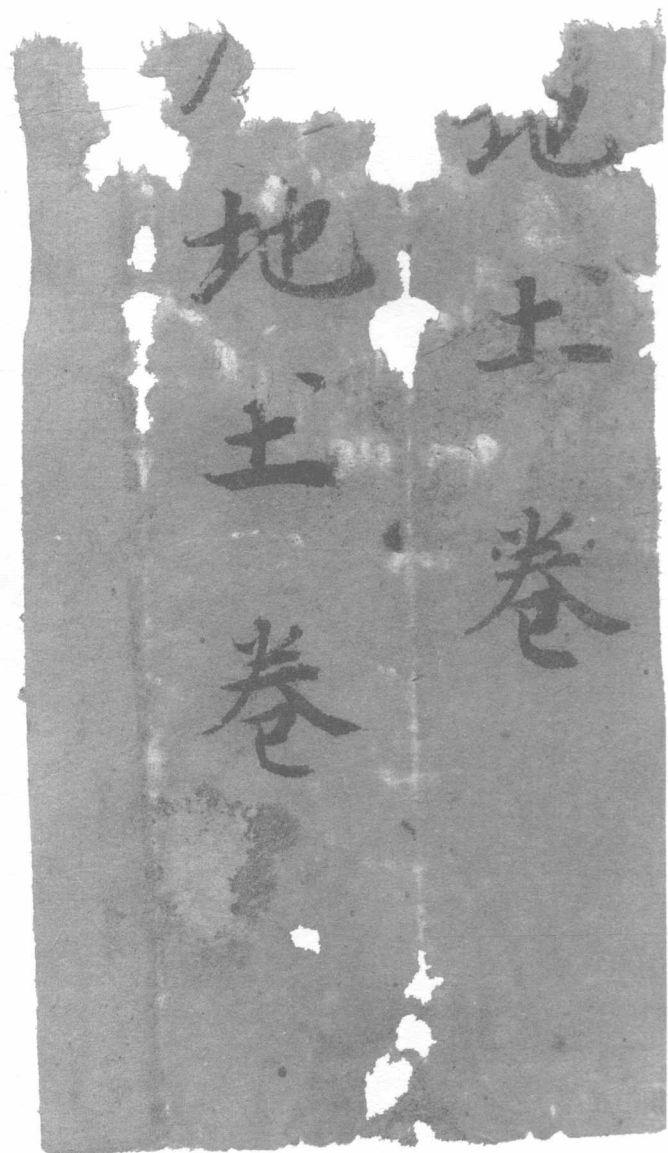 地土卷
地土卷